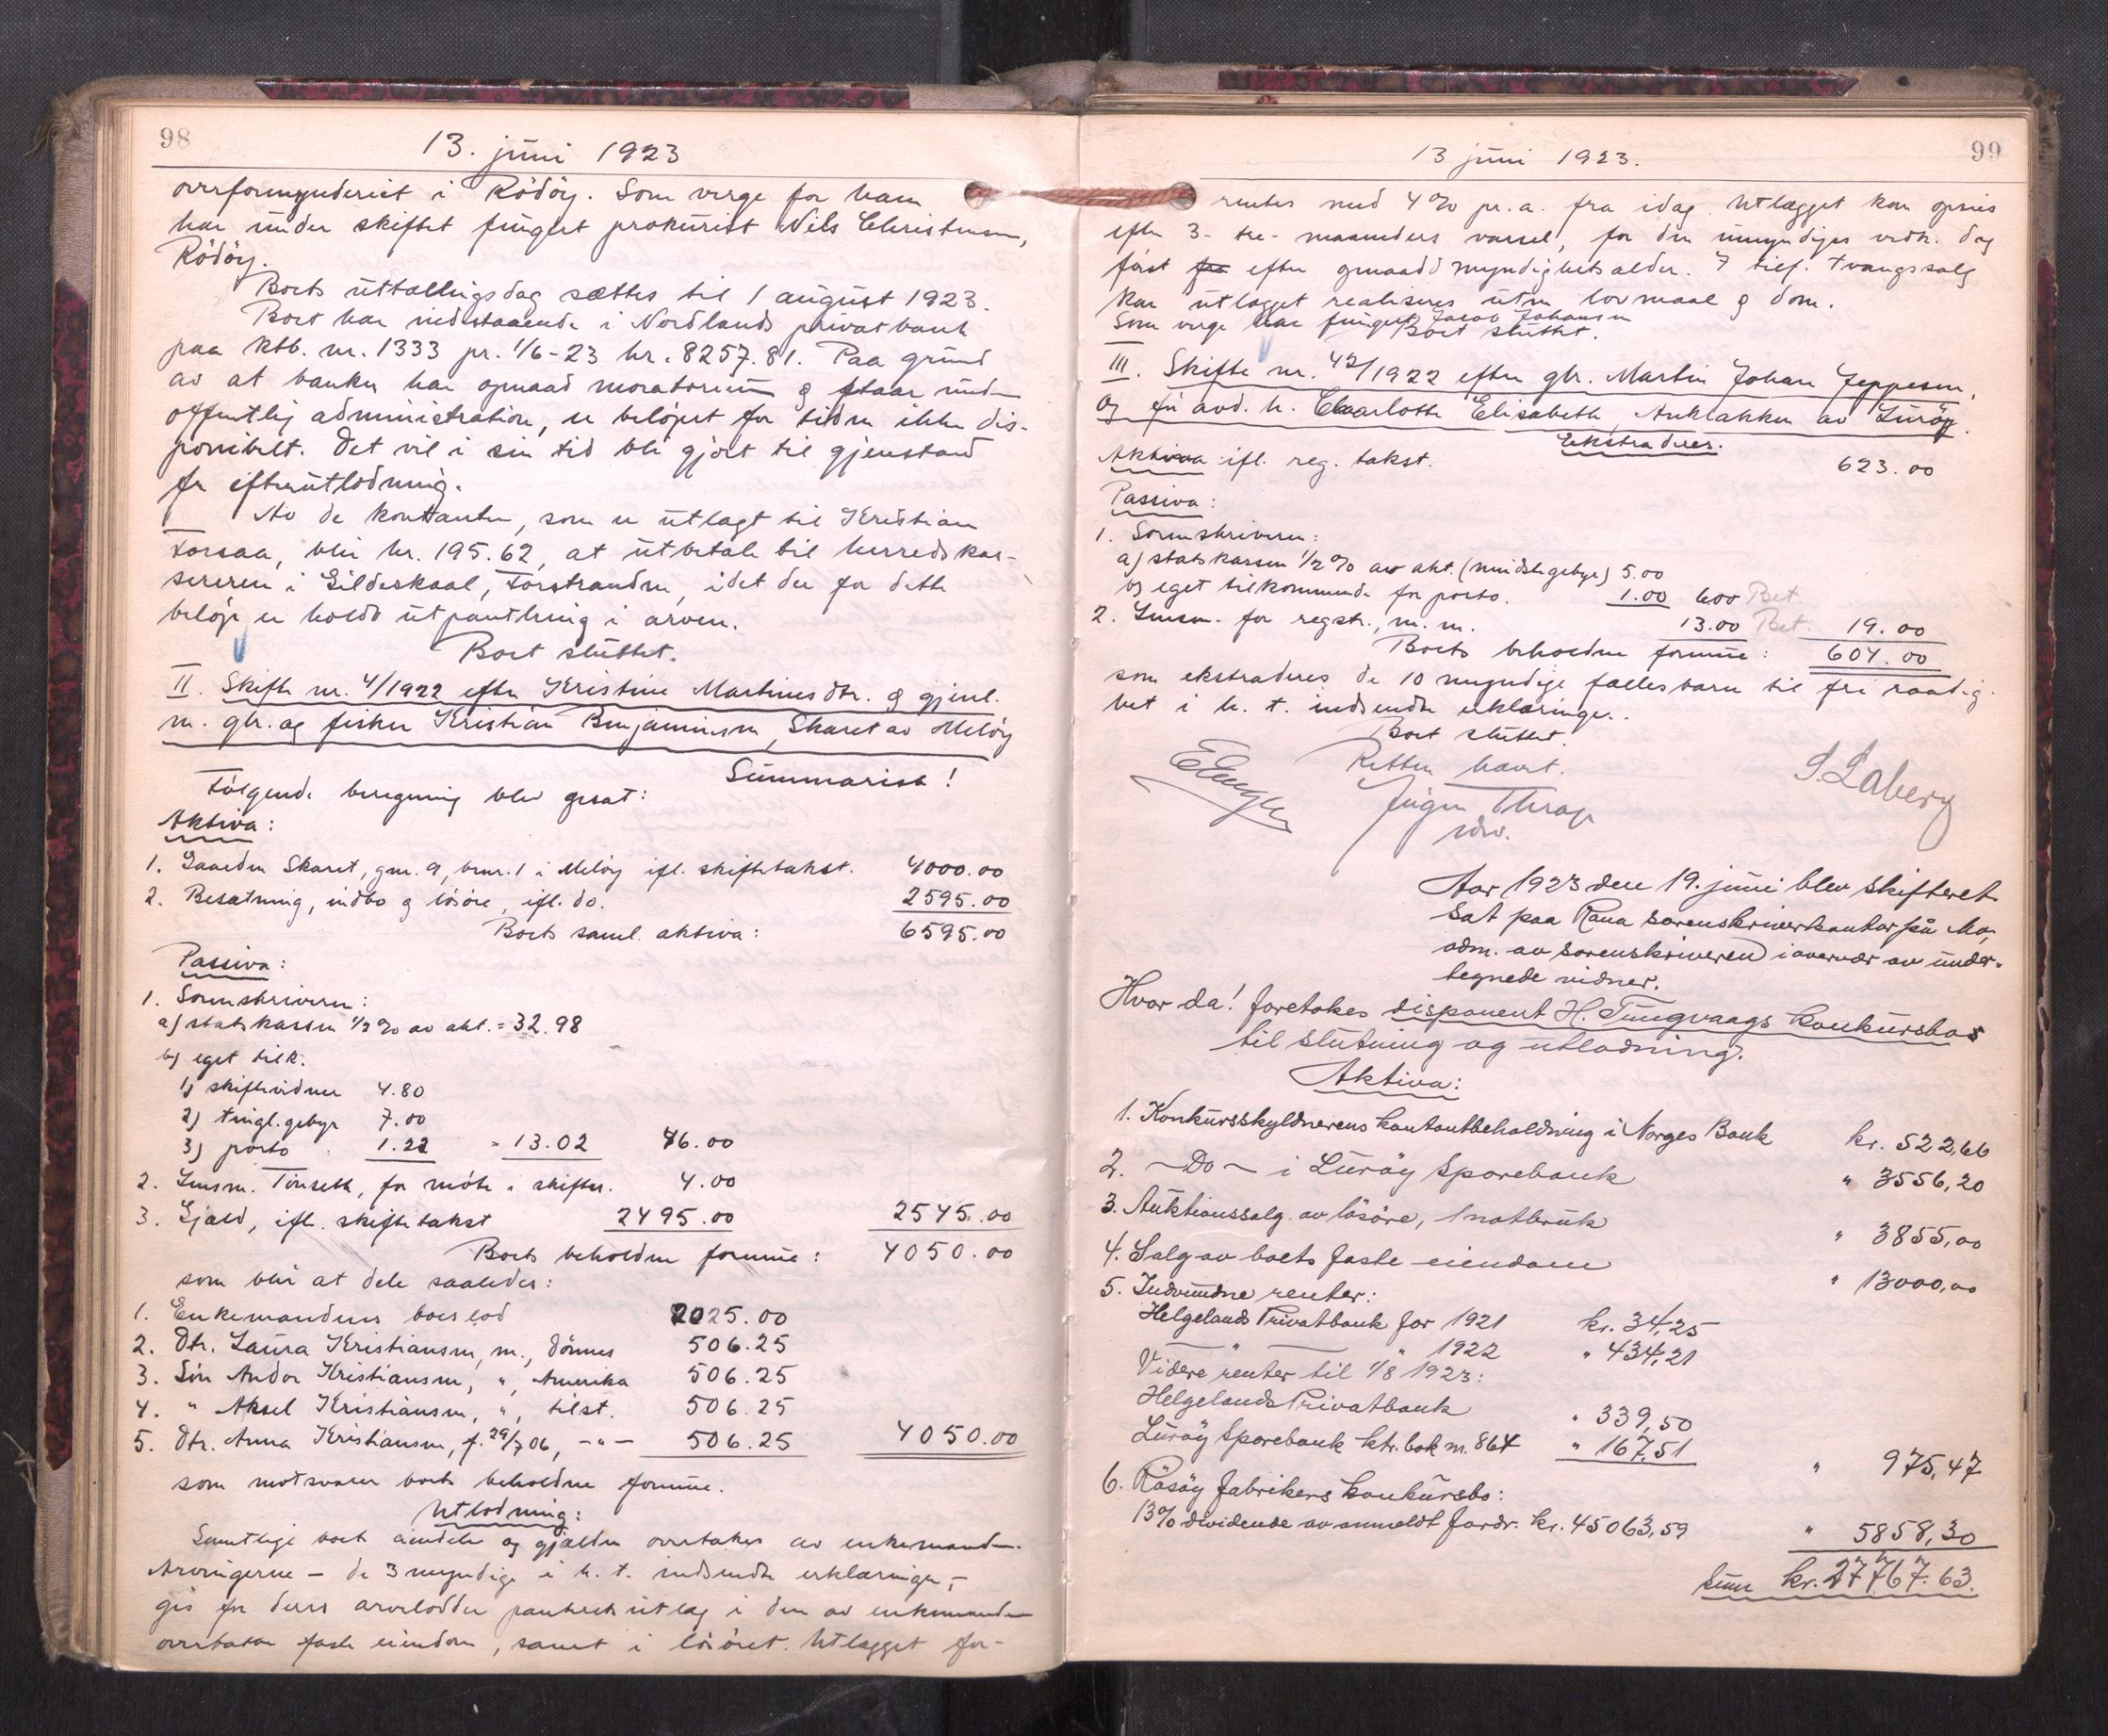 98
13. juni 1923
overformynderiet i Rödöy. Som verge for ham
har under skiftet fungert prokurist Nils Christensen,
Rödöy.
Boets uttællingsdag sættes til 1 august 1923.
Boet har indstaaende i Nordlands privatbank
paa ktb. nr. 1333 pr. 1/6-23 kr. 8257.81. Paa grund
av at banken har opnaad moratorium og staar under
offentlig administration, er beløpet for tiden ikke dis-
ponibelt. Det vil i sin tid bli gjort til gjenstand
for efterutlodning.
Av de kontanter, som er utlagt til Kristian
Forsaa, blir kr. 195.62 at utbetale til herredskas-
sereren i Gildeskaal, Forstranden, idet der for dette
beløp er holdt utpantning i arven.
Boet sluttet.
II. Skifte nr. 4/1922 efter Kristine Martinusdtr. og gjenl.
m. gbr. og fisker Kristian Benjaminsen, Skaret av Meløy
Summarisk!
Følgende beregning blev gjort:
Aktiva:
1. Gaarden Skaret, gnr. 9, bnr. 1 i Meløy ifl. skiftetakst. 4000.00
2. Besætning, indbo og løsøre, ifl. do. 2595.00
Boets saml. aktiva: 6595.00
Passiva:
1. Sorenskriveren:
a) statskassen 1/2 % av akt. = 32.98
b) eget tilk.
1) skiftevidner 4.80
2) tingl.gebyr 7.00
3) porto 1.22 = 13.02 46.00
2. Lensm. Tönseth, for møte i skiftet. 4.00
3. Gjæld, ifl. skiftetakst 2495.00 2545.00
Boets beholdne formue: 4050.00
som blir at dele saaledes:
1. Enkemandens boeslod 2025.00
2. Dtr. Laura Kristiansen, m., Dönnes 506.25
3. Søn Andor Kristiansen, ", Amerika 506.25
4. " Aksel Kristiansen, ", tilst. 506.25
5. Dtr. Anna Kristiansen, f. 29/7 06, -"- 506.25 4050.00
som motsvarer boets beholdne formue.
Utlodning:
Samtlige boets eiendele og gjælden overtakes av enkemanden.
Arvingerne - de 3 myndige i h. t. indsendte erklæringer, -
gis for deres arvelodder panteretsutlæg i den av enkemanden
overtatte faste eiendom, samt i løsöret. Utlægget for-
99
13 juni 1923.
rentes med 4 % pr. a. fra idag. Utlægget kan opsies
efter 3- tre- maaneders varsel, for den umyndiges vedk. dog
først fra efter opnaadd myndighetsalder. I tilf. tvangssalg
kan utlægget realiseres uten lovmaal og dom.
Som verge har fungert Jacob Johansen
Boet sluttet.
III. Skifte nr. 42/1922 efter gbr. Martin Johan Jeppesen,
og før avd. h. Charlotte Elisabeth, Auklakken av Luröy.
Ekstraderes.
Aktiva ifl. reg. takst. 623.00
Passiva:
1. Sorenskriveren:
a) statskassen 1/2 % av akt. (mindstegebyr) 5.00
b) eget tilkommende for porto. 1.00 6.00 Bet.
2. Lensm. for registr., m. m. 13.00 Bet. 19.00
Boets beholdne formue: 604.00
som ekstraderes de 10 myndige fællesbarn til fri raadig-
het i h. t. indsendte erklæringer.
Boet sluttet.
Retten hævet.
Jürgen Thrap
sdv.
S. Laberg
Aar 1923 den 19. juni blev skifteret
sat paa Rana sorenskriverkontor på Mo,
adm. av sorenskriveren i overvær av under-
tegnede vidner.
Hvor da! foretokes disponent H. Tungvaags konkursbos
til slutning og utlodning.
Aktiva:
1. Konkursskyldnerens kontantbeholdning i Norges Bank kr. 522,66
2. -Do- i Luröy Sparebank " 3556,20
3. Auktionssalg av løsöre, / notbruk " 3855,00
4. Salg av boets faste eiendom " 13000,00
5. Indvundne renter:
Helgelands Privatbank for 1921 kr. 34,25
" — " 1922 " 434,21
Videre renter til 1/8 1923:
Helgelands Privatbank " 339,50
Luröy Sparebank ktr. bok nr. 864 " 167,51 " 975,47
6. Råsöy fabrikers konkursbo:
13% dividende av anmeldt fordr. kr. 45063,59 " 5858,30
Sum kr. 27767.63.